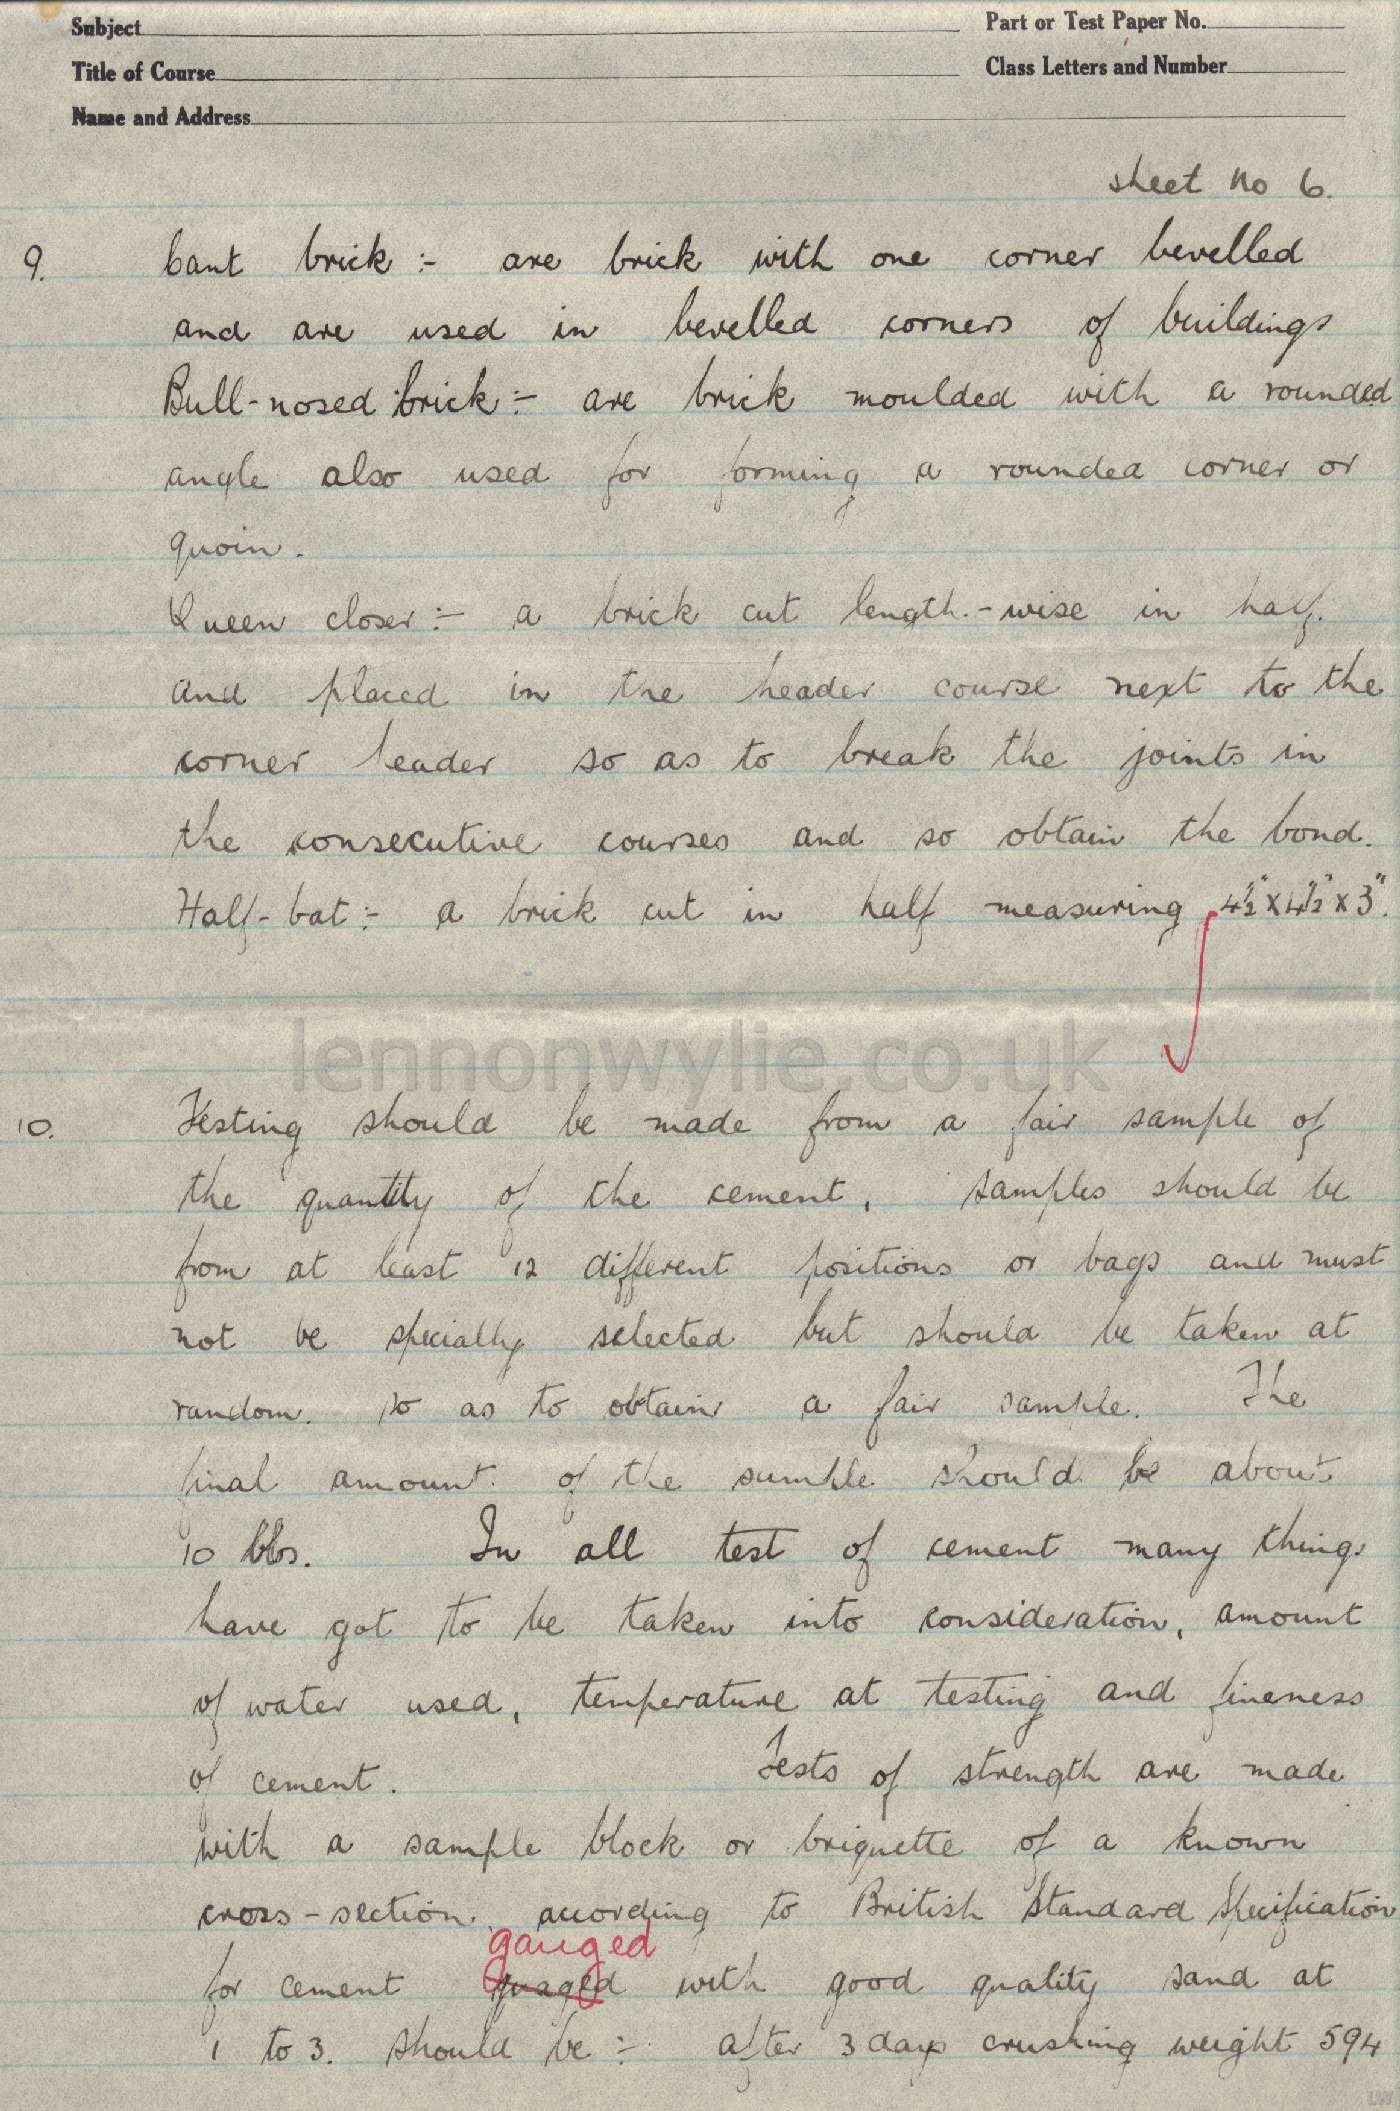 Subject
Part or Test Paper No.
Title of Course
Class Letters and Number
Name and Address
sheet No 6.
9. Cant brick :- are brick with one corner bevelled
and are used in bevelled corners of buildings
Bull-nosed brick :- are brick moulded with a rounded
angle also used for forming a rounded corner or
quoin.
Queen closer :- a brick cut length-wise in half.
and placed in the header course next to the
corner header so as to break the joints in
the consecutive courses and so obtain the bond.
Half-bat :- a brick cut in half measuring 4½" x 4½" x 3".
lennonwylie.co.uk
10. Testing should be made from a fair sample of
the quantity of the cement, samples should be
from at least 12 different positions or bags and must
not be specially selected but should be taken at
random. so as to obtain a fair sample. The
final amount of the sample should be about
10 lbs. In all test of cement many things
have got to be taken into consideration, amount
of water used, temperature at testing and fineness
of cement. Tests of strength are made
with a sample block or briquette of a known
cross-section. according to British Standard Specification
gauged
for cement guaged with good quality sand at
1 to 3. should be :- after 3 days crushing weight 594